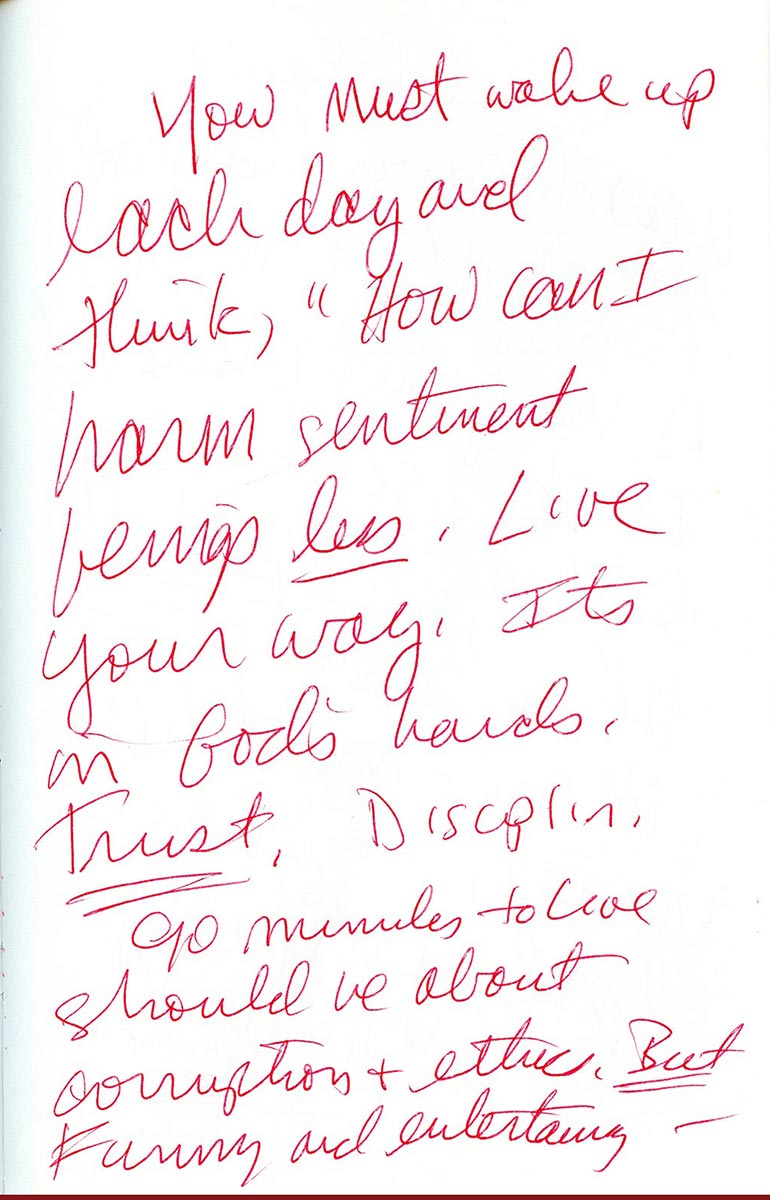 You must wake up
each day and
think, "How can I
harm sentinent
beings less. Live
your way. Its
in God's hands.
Trust. Disciplin.
90 minutes to live
should be about
corruption + ethic. But
Funny and entertaing –